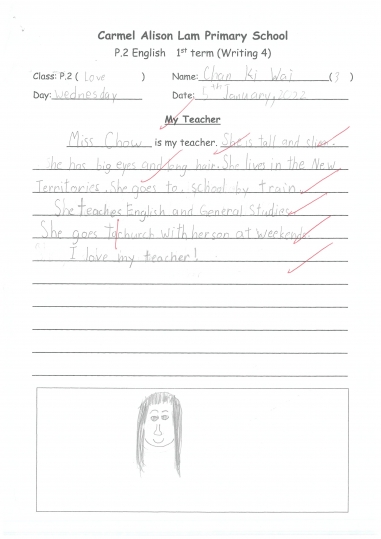 Carmel Alison Lam Primary School
P.2 English 1st term (Writing 4)
Class: P.2 ( Love ) Name: Chan Ki Wai ( 3 )
Day: Wednesday Date: 5th January, 2022
My Teacher
Miss Chow is my teacher. She is tall and
She has big eyes and long hair. She lives in the New
Territories. She goes to school by train.
She teaches English and General Studies.
She goes to church with her son at weekends.
I love my teacher!